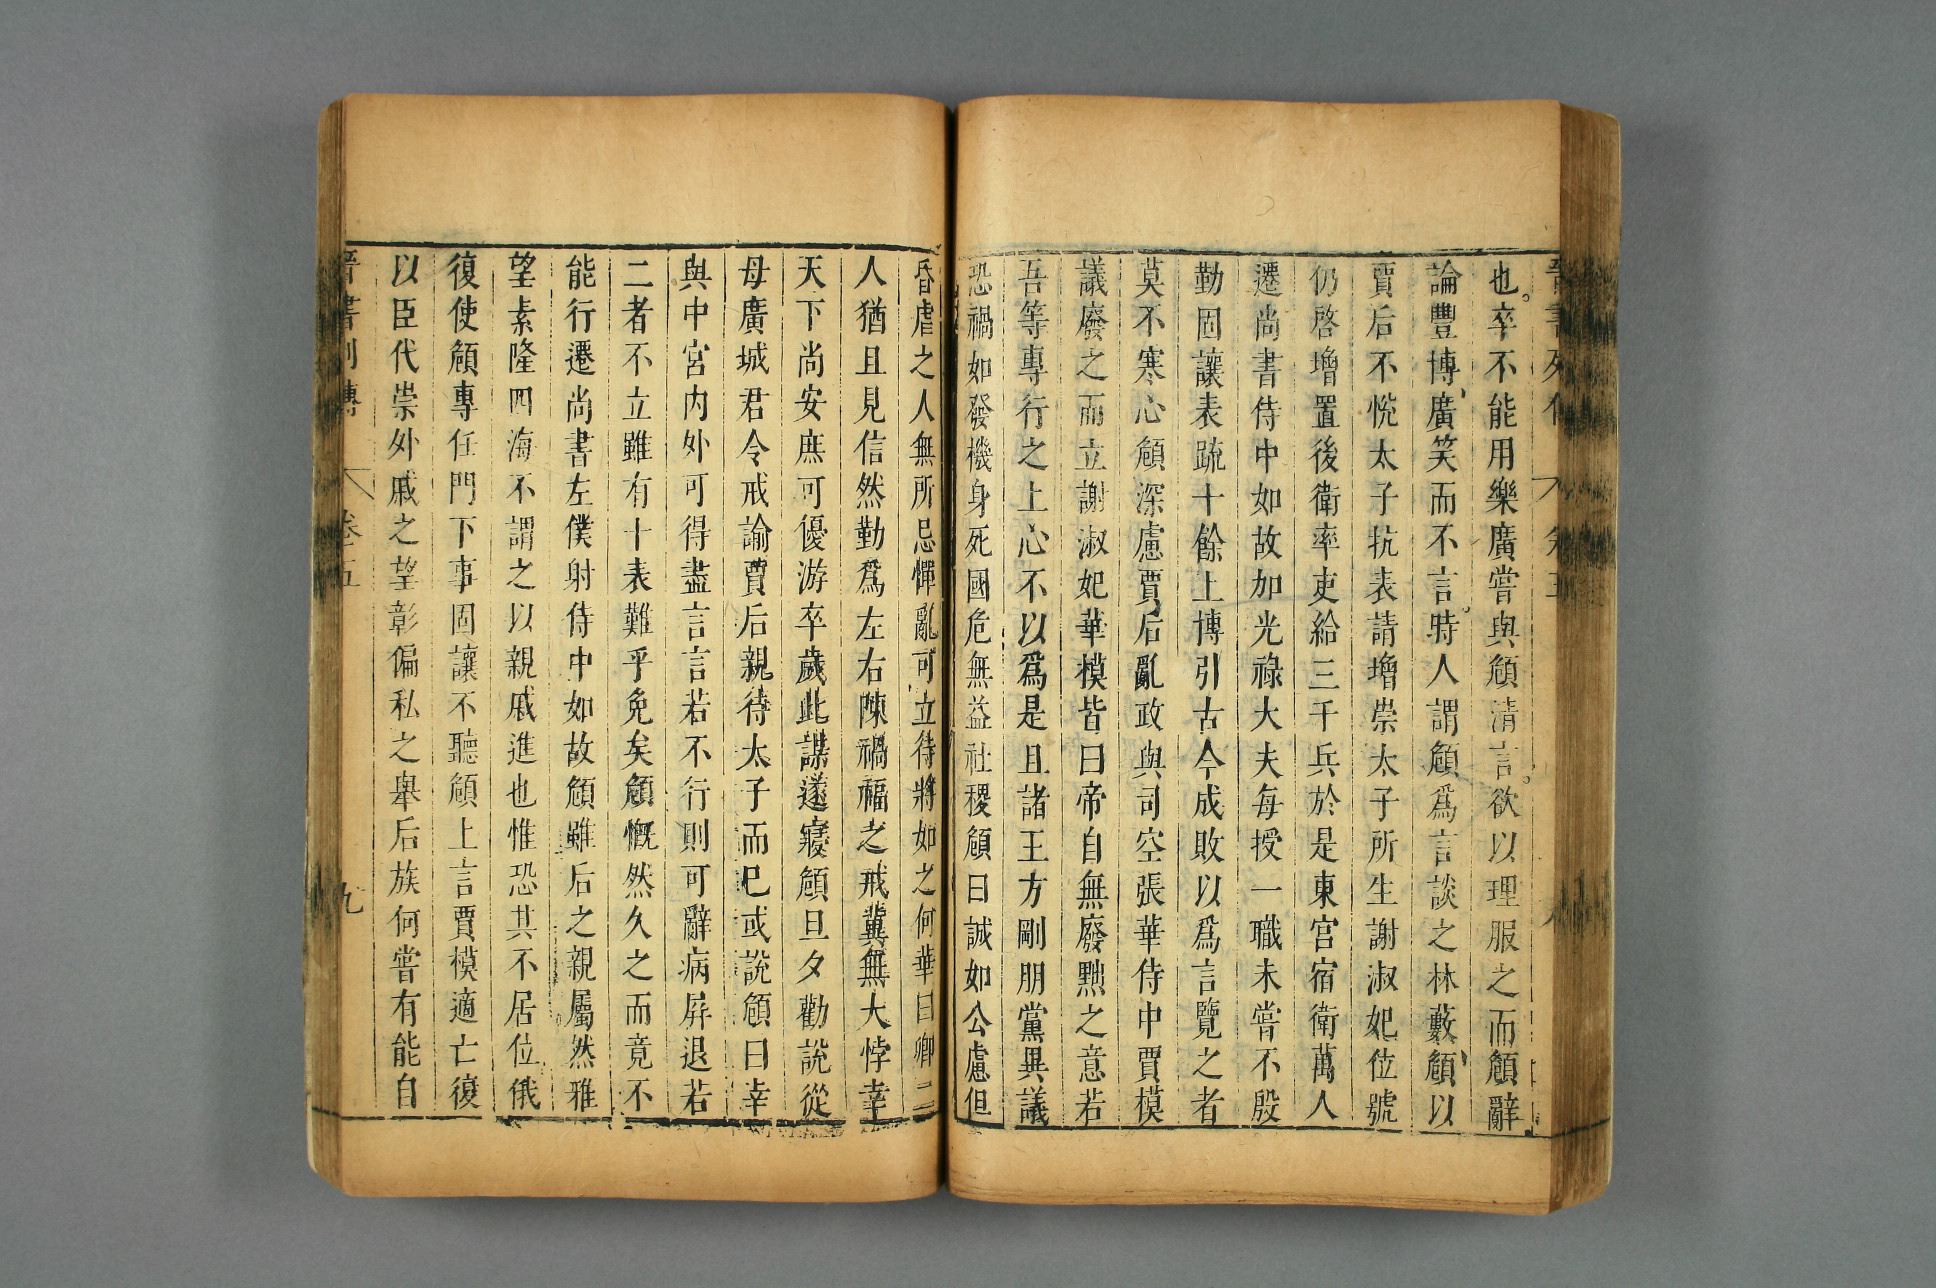 也卒不能用樂廣嘗與頠清言欲以理服之而頠辭
論豐博廣笑而不言時人謂頠爲言談之林藪頠以
賈后不悅太子抗表請增崇太子所生謝淑妃位號
仍啓增置後衛率吏給三千兵於是東宮宿衛萬人
遷尚書侍中如故加光祿大夫每授一職未嘗不殷
勤固讓表疏十餘上博引古今成敗以爲言覽之者
莫不寒心頠深慮賈后亂政與司空張華侍中賈模
議廢之而立謝淑妃華模皆曰帝自無廢黜之意若
吾等專行之上心不以爲是且諸王方剛朋黨異議
恐禍如發機身死國危無益社稷頠曰誠如公慮但
昏虐之人無所忌憚亂可立待將如之何華曰卿二
人猶且見信然勤爲左右陳禍福之戒冀無大悖幸
天下尚安庶可優游卒歲此謀遂寢頠旦夕勸說從
母廣城君令戒諭賈后親待太子而已或說頠曰幸
與中宮內外可得盡言言若不行則可辭病屏退若
二者不立雖有十表難乎免矣頠慨然久之而竟不
能行遷尚書左僕射侍中如故頠雖后之親屬然雅
望素隆四海不謂之以親戚進也惟恐其不居位俄
復使頠專任門下事固讓不聽頠上言賈模適亡復
以臣代崇外戚之望彰偏私之舉后族何嘗有能自
晉書列傳 卷五 九